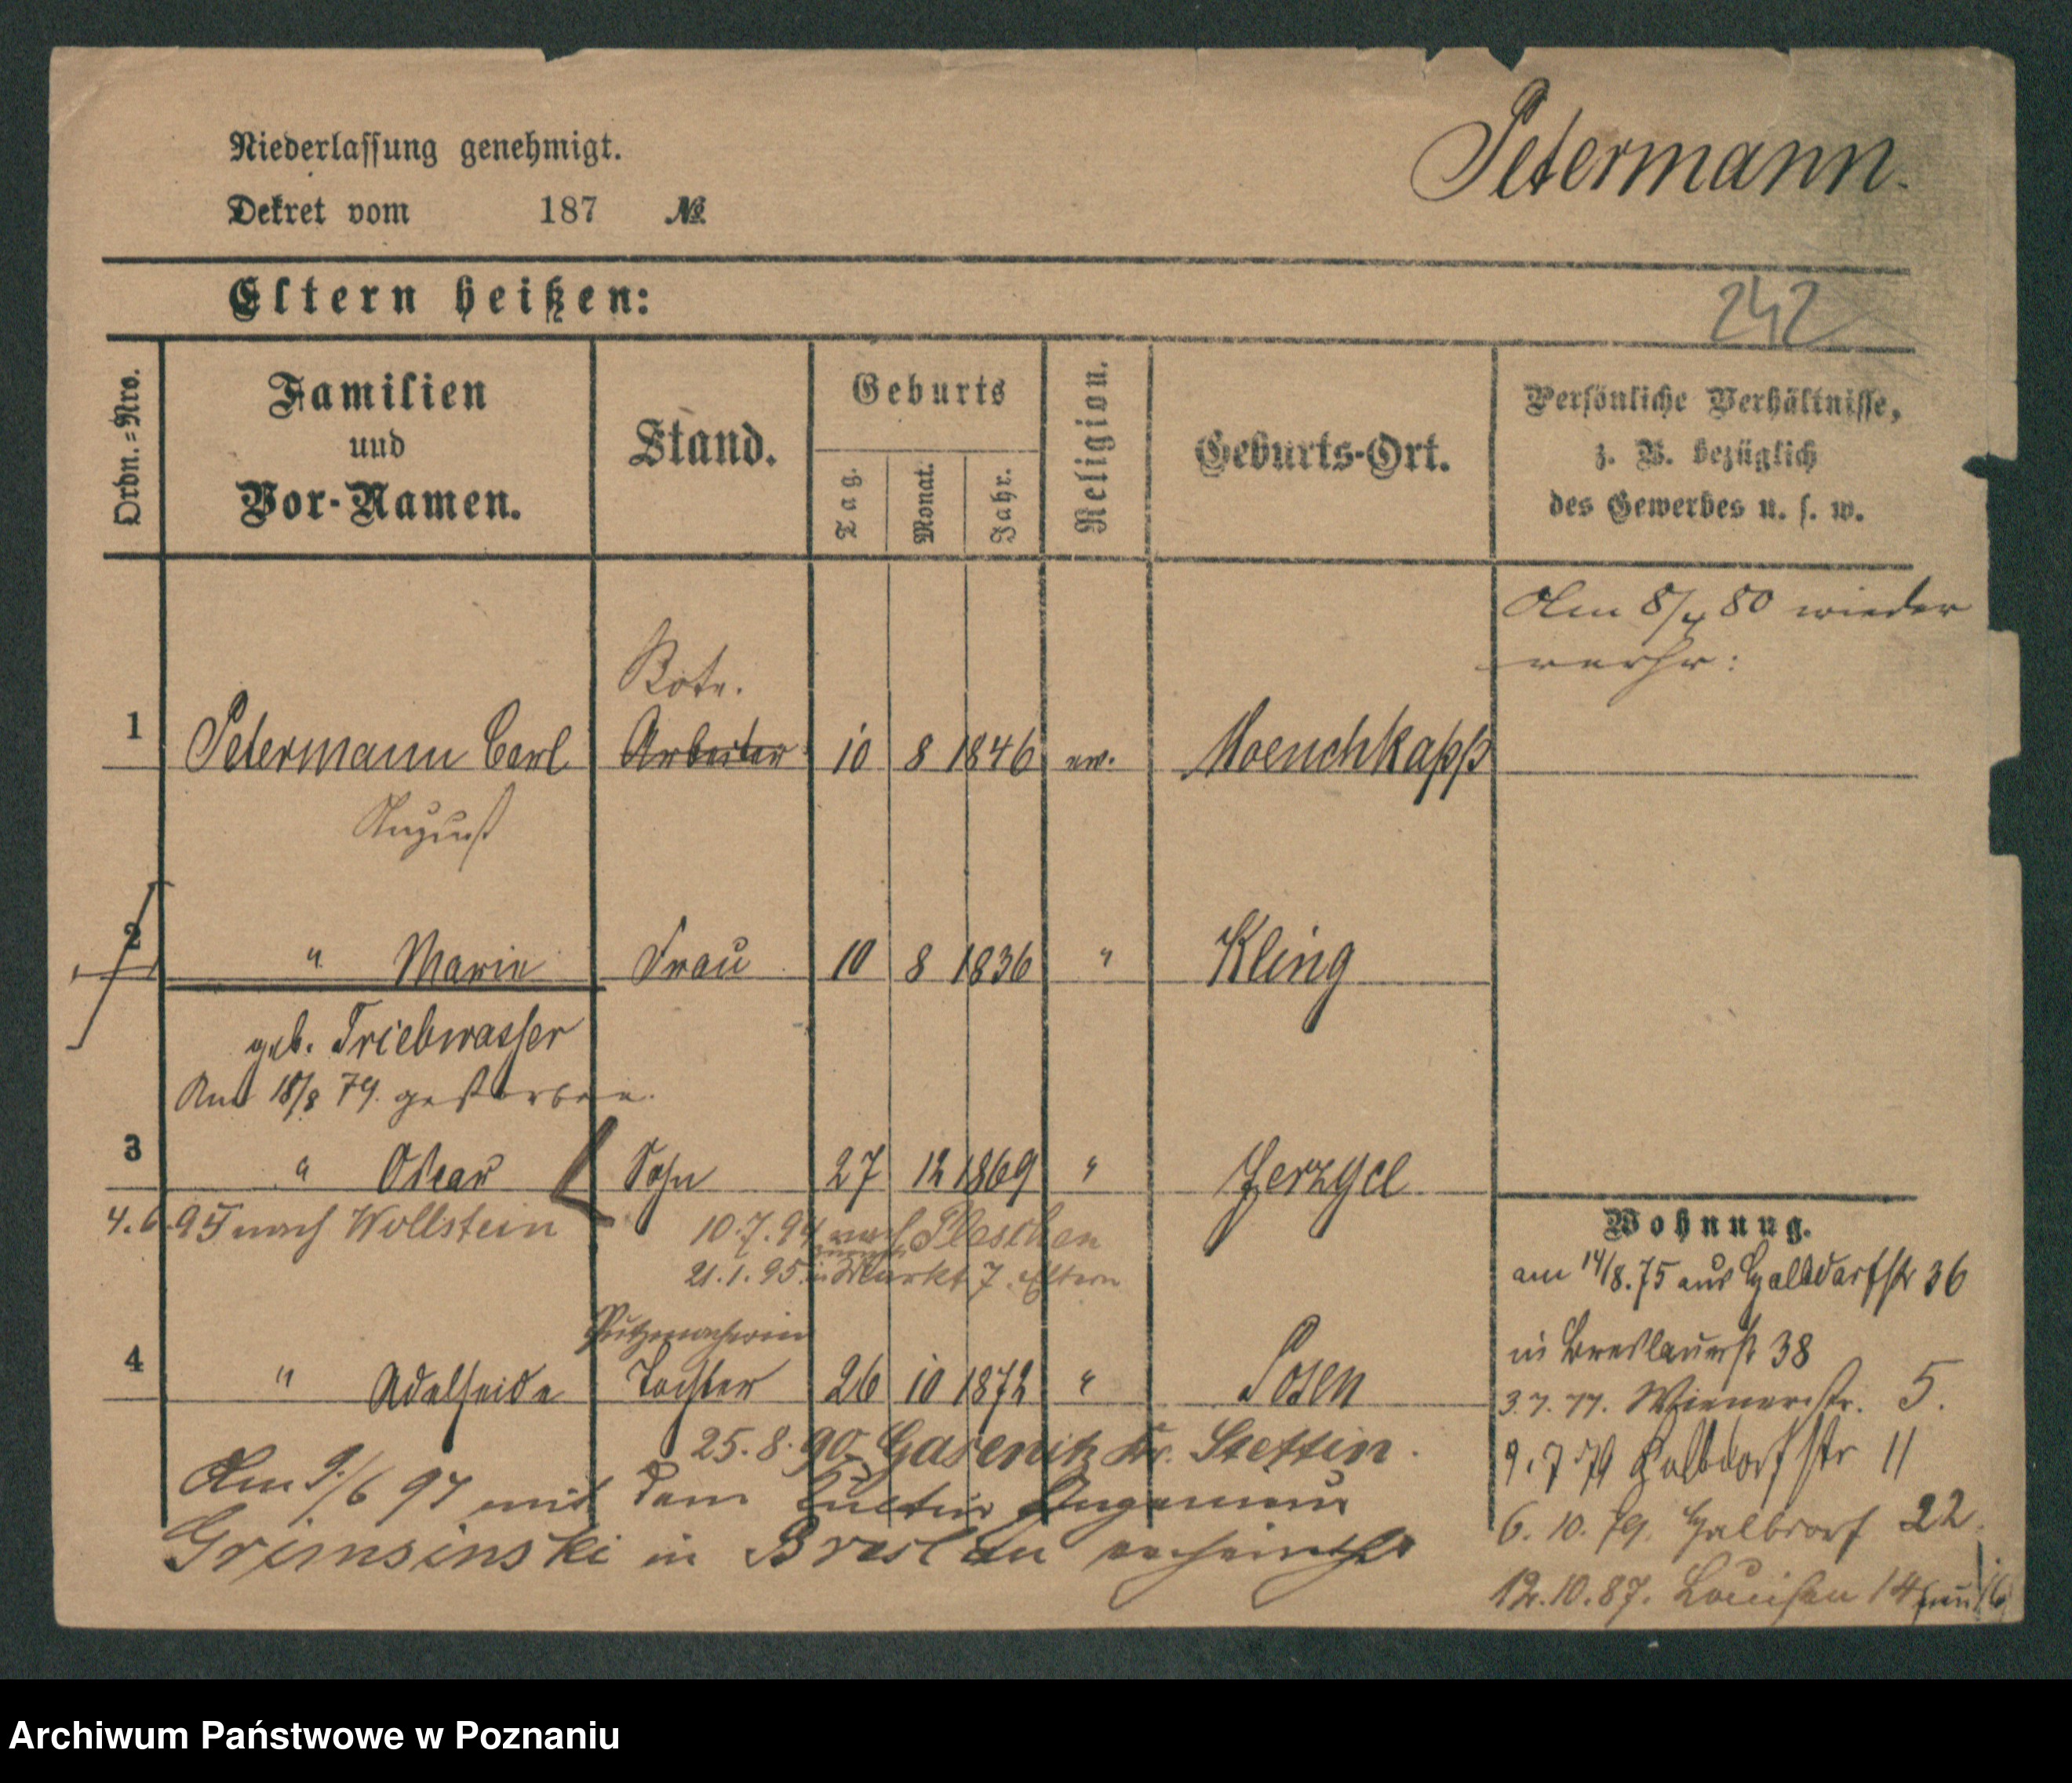 Niederlassung genehmigt.
Petermann.
Dekret vom 187 №
Eltern heißen:
242
Ordn.=Nro.
Familien
und
Vor-Namen.
Stand.
Geburts
Tag.
Monat.
Jahr.
Religion.
Geburts-Ort.
Persönliche Verhältnisse,
z. B. bezüglich
des Gewerbes u. s. w.
Am 8/ 80 wieder
Bote.
1 Petermann Carl Arbeiter 10 8 1846 ev. Moenchkapp
August
2 " Marie Frau 10 8 1836 " Kling
geb. Triebwasser
Am 18/8 79. gestorben.
3 " Oscar Sohn 27 12 1869 " Jerzyce
4.6.95 nach Wollstein 10.7.94 nach Pleschen
21.1.95 Markt 7. Eltern
Putzmacherin
4 " Adelheide Tochter 26 10 1872 " Posen
25.8.90 Gasenitz Kr. Stettin.
Am 9/6 97 mit dem Kultur Ingenieur
Grimsinski in Breslau verheirathet
Wohnung.
am 14/8.75 aus Halbdorfstr 36
in Breslauerstr 38
3.7.77. Wienerstr. 5.
9.7.79 Halbdorfstr 11
6.10.79. Halbdorf 22
12.10.87. Louisen 14